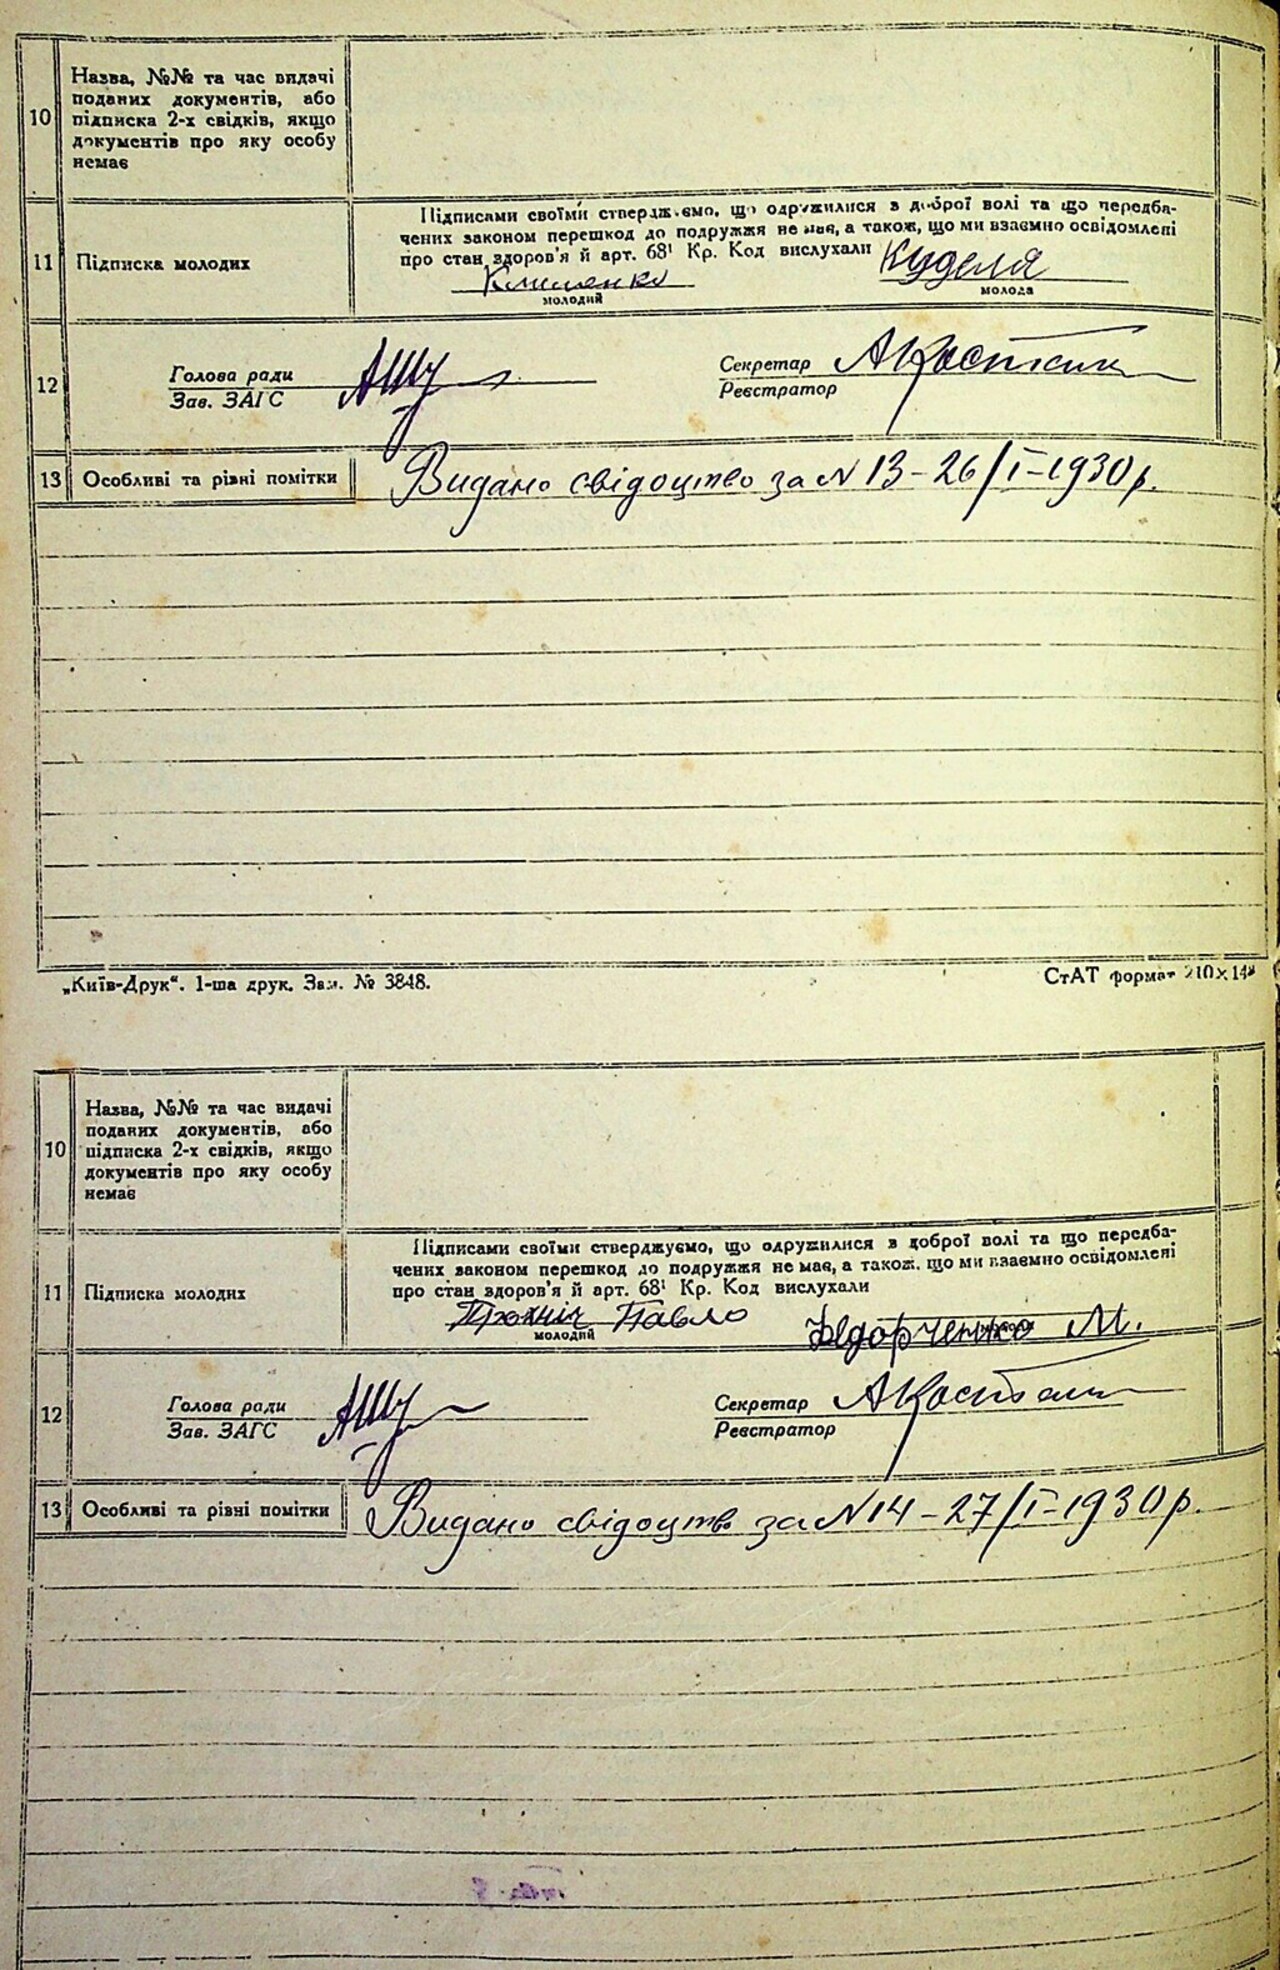 10
Назва, №№ та час видачі
поданих документів, або
підписка 2-х свідків, якщо
документів про яку особу
немає
11
Підписка молодих
Підписами своїми стверджуємо, що одружилися з доброї волі та що передба-
чених законом перешкод до подружжя не має, а також, що ми взаємно освідомлені
про стан здоров'я й арт. 68¹ Кр. Код вислухали
Клименко
Куделя
молодий
молода
12
Голова ради
Зав. ЗАГС
Секретар
Реєстратор
13
Особливі та рівні помітки
Видано свідоцтво за N 13-26/I-1930 р.
„Київ-Друк“. 1-ша друк. Зам. № 3848.
СтАТ формат 210×148
10
Назва, №№ та час видачі
поданих документів, або
підписка 2-х свідків, якщо
документів про яку особу
немає
11
Підписка молодих
Підписами своїми стверджуємо, що одружилися з доброї волі та що передба-
чених законом перешкод до подружжя не має, а також, що ми взаємно освідомлені
про стан здоров'я й арт. 68¹ Кр. Код вислухали
Павло
Федорченко М.
молодий
молода
12
Голова ради
Зав. ЗАГС
Секретар
Реєстратор
13
Особливі та рівні помітки
Видано свідоцтво за N 14-27/I-1930 р.